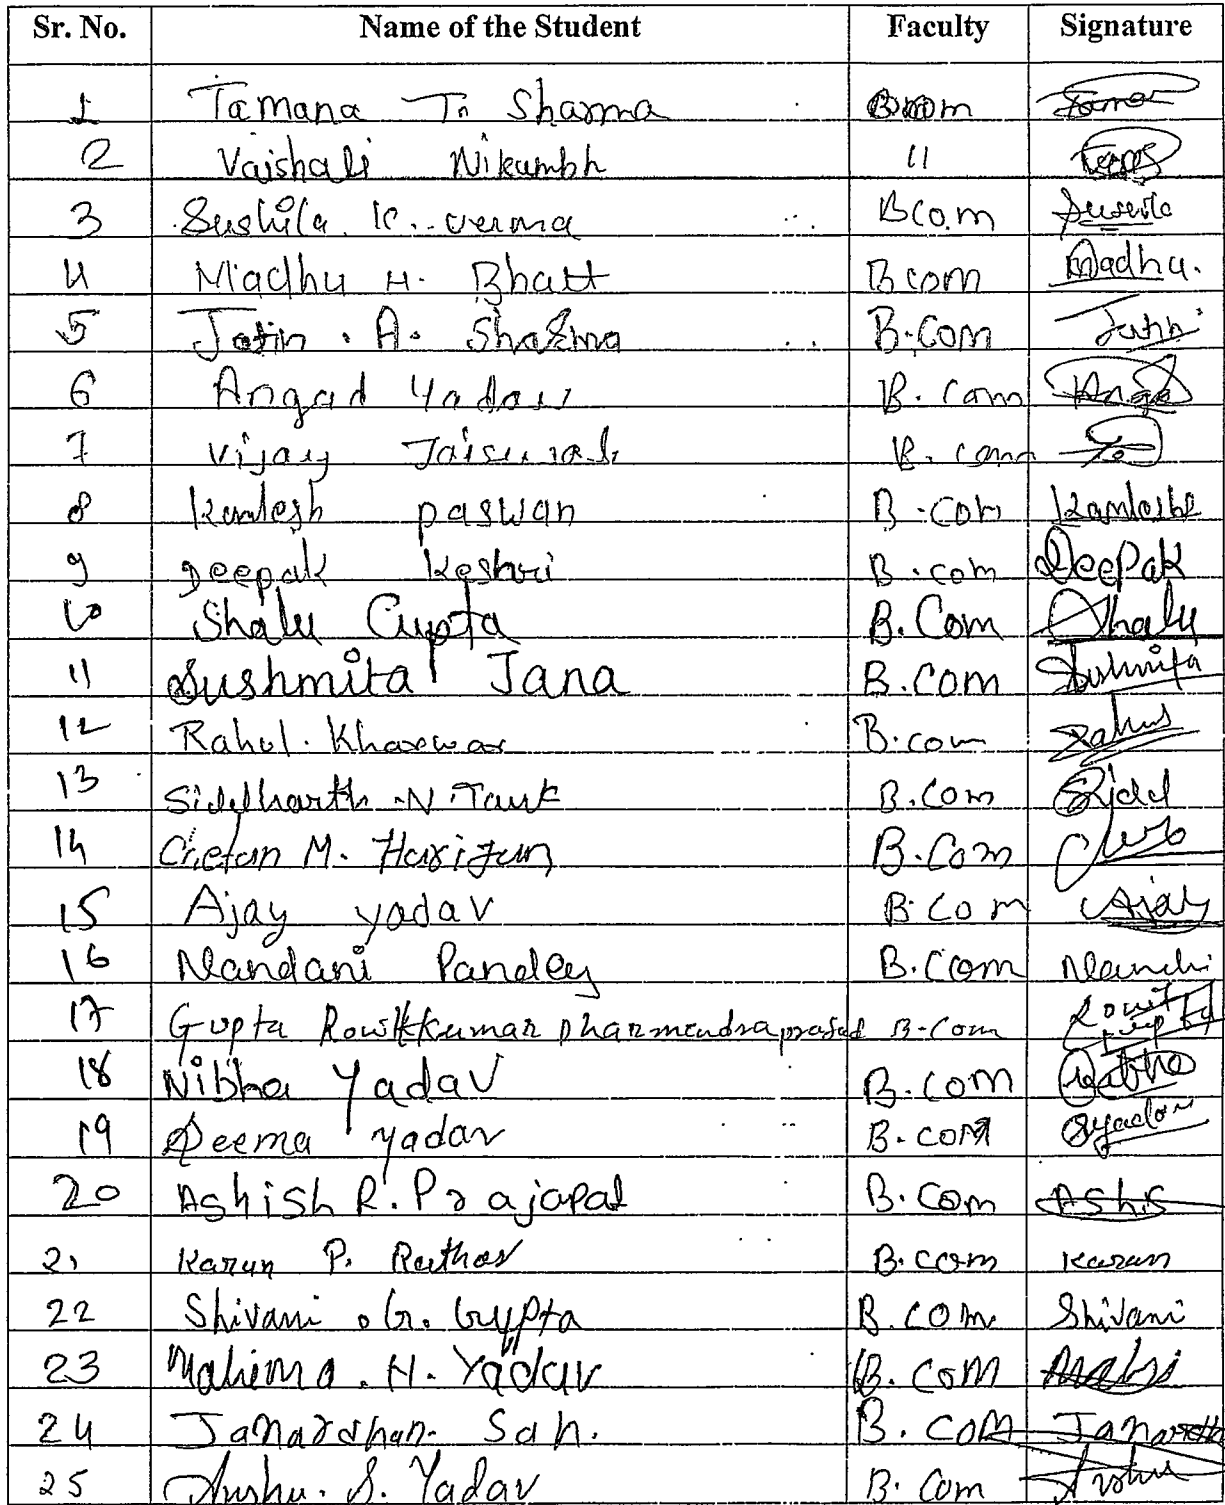 Sr. No. Name of the Student Faculty Signature
1 Tamana T. Sharma B.com
2 Vaishali Nikumbh 11
3 Sushila. K. verma Bcom
4 Madhu H. Bhatt Bcom Madhu.
5 Jatin . A. Sharma B.Com Jatin
6 Angad Yadav B. Com Anga
7 Vijay Jaiswal B. com
8 Kamlesh paswan B.com Kamlesh
9 Deepak Keshri B.com DeePak
10 Shalu Gupta B.Com Shalu
11 Sushmita Jana B.Com Sushmita
12 Rahul. Kharwar B.com Rahul
13 Siddharth .N. Tank B.Com Sidd
14 Chetan M. Harijan B.Com
15 Ajay yadav B.Com Ajay
16 Nandani Pandey B.Com Nandni
17 Gupta Rowitkkumar Dharmendraprasad B.Com Rowit Gupta
18 Nibha Yadav B.COM
19 Seema yadav B.COM Syadav
20 Ashish R. Prajapat B.Com Ashis
21 Karan P. Rathor B.com Karan
22 Shivani . G. Gupta B.COM Shivani
23 Mahima . H. Yadav B. COM Mahi
24 Janardhan. Sah. B. COM
25 Anshu. S. Yadav B. Com Anshu